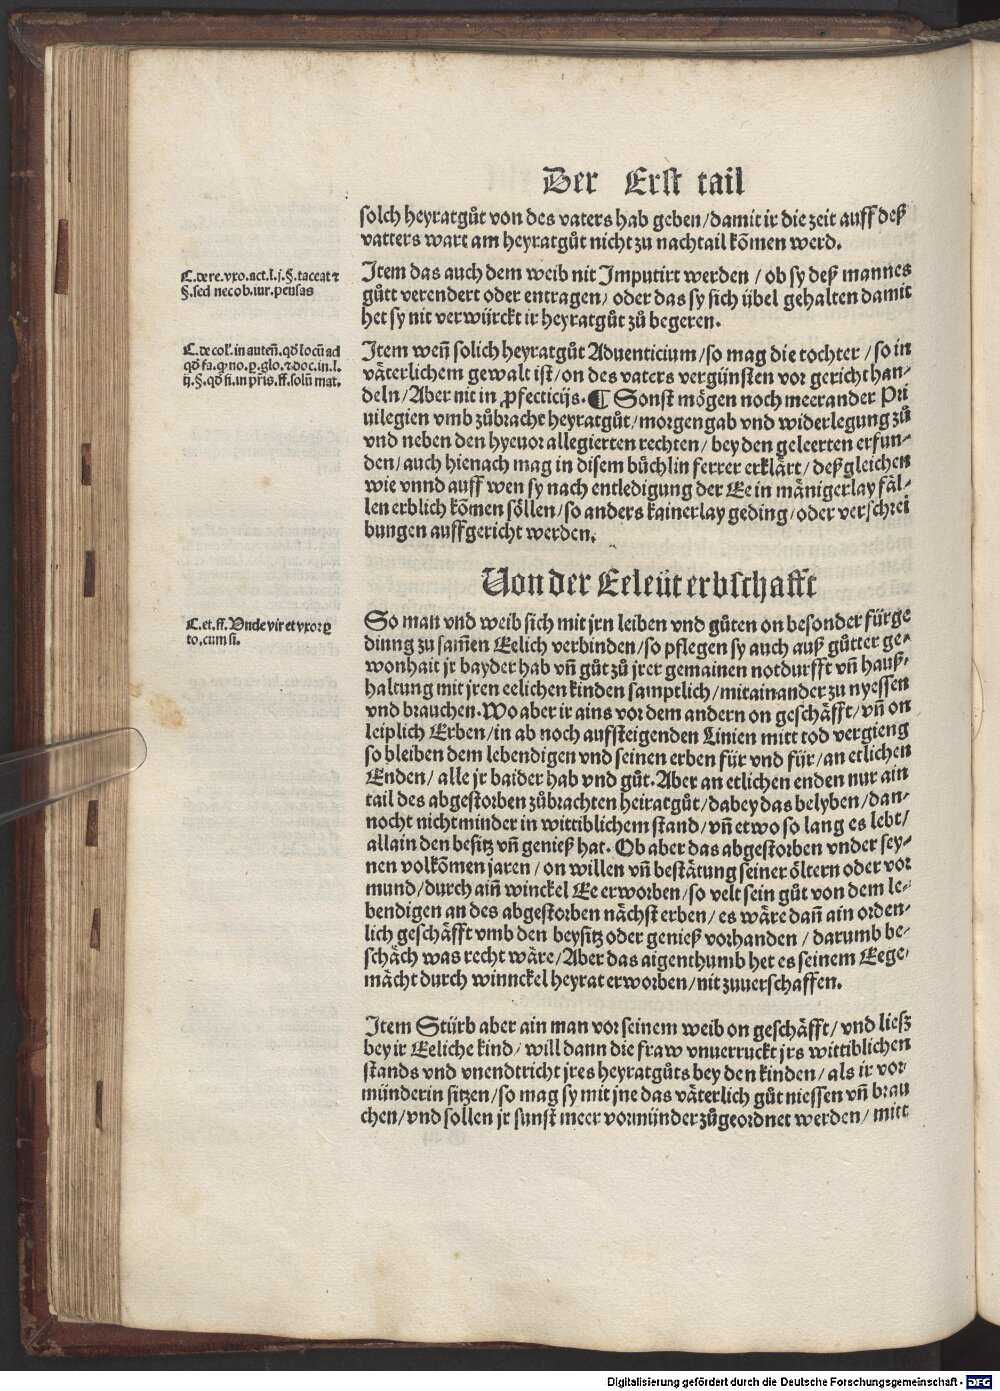 Der Erst tail
solch heyratgůt von des vaters hab geben/damit ir die zeit auff deß
vatters wart am heyratgůt nicht zu nachtail kõmen werd.
C. de re. vxo. act. l. j. §. taceat ⁊
§. sed nec ob. iur. pensas
Item das auch dem weib nit Imputirt werden / ob sy deß mannes
gůtt verendert oder entragen/ oder das sy sich übel gehalten damit
het sy nit verwürckt ir heyratgůt zů begeren.
C. de col. in auteñ. qđ locũ ad
qđ fa. qꝫ no. ꝑ. glo. ⁊ doc. in. l.
ij. §. qđ si. in pris. ff. solũ mat.
Item weñ solich heyratgůt Aduenticium/so mag die tochter / so in
väterlichem gewalt ist/on des vaters vergünsten vor gericht han⸗
deln/Aber nit in ꝓfecticijs. ¶ Sonst mögen noch meer ander Pri
uilegien vmb zůbracht heyratgůt/morgengab vnd widerlegung zů
vnd neben den hyeuor allegierten rechten/ bey den geleerten erfun⸗
den/auch hienach mag in disem bůchlin ferrer erklärt/deßgleichen
wie vnnd auff wen sy nach entledigung der Ee in mänigerlay fäl⸗
len erblich kõmen söllen/so anders kainerlay geding/oder verschrei
bungen auffgericht werden.
Von der Eeleüt erbschafft
C. et. ff. Vnde vir et vxor ꝑ
to. cum si.
So man vnd weib sich mit jrn leiben vnd gůten on besonder fürge
dinng zu sam̃en Eelich verbinden/so pflegen sy auch auß gůtter ge⸗
wonhait jr bayder hab vñ gůt zů jrer gemainen notdurfft vñ hauß⸗
haltung mit jren eelichen kinden samptlich/mitainander zu nyessen
vnd brauchen. Wo aber ir ains vor dem andern on geschäfft/ vñ on
leiplich Erben/in ab noch aufsteigenden Linien mitt tod vergieng
so bleiben dem lebendigen vnd seinen erben für vnd für/an etlichen
Enden/ alle jr baider hab vnd gůt. Aber an etlichen enden nur ain
tail des abgestorben zůbrachten heiratgůt/dabey das belyben/dan⸗
nocht nicht minder in wittiblichem stand/vñ etwo so lang es lebt/
allain den besitz vñ genieß hat. Ob aber das abgestorben vnder sey⸗
nen volkõmen jaren/on willen vñ bestätung seiner öltern oder vor
mund/durch aiñ winckel Ee erworben/so velt sein gůt von dem le⸗
bendigen an des abgestorben nächst erben/ es wäre dañ ain orden⸗
lich geschäfft vmb den beysitz oder genieß vorhanden / darumb be⸗
schäch was recht wäre/Aber das aigenthumb het es seinem Eege⸗
mächt durch winnckel heyrat erworben/nit zuuerschaffen.
Item Stürb aber ain man vor seinem weib on geschäfft/vnd ließ
bey ir Eeliche kind/ will dann die fraw vnuerruckt jrs wittiblichen
stands vnd vnendtricht jres heyratgůts bey den kinden/als ir vor
münderin sitzen/so mag sy mit jne das väterlich gůt niessen vñ brau
chen/vnd sollen jr sunst meer vormünder zůgeordnet werden/ mitt
Digitalisierung gefördert durch die Deutsche Forschungsgemeinschaft - DFG